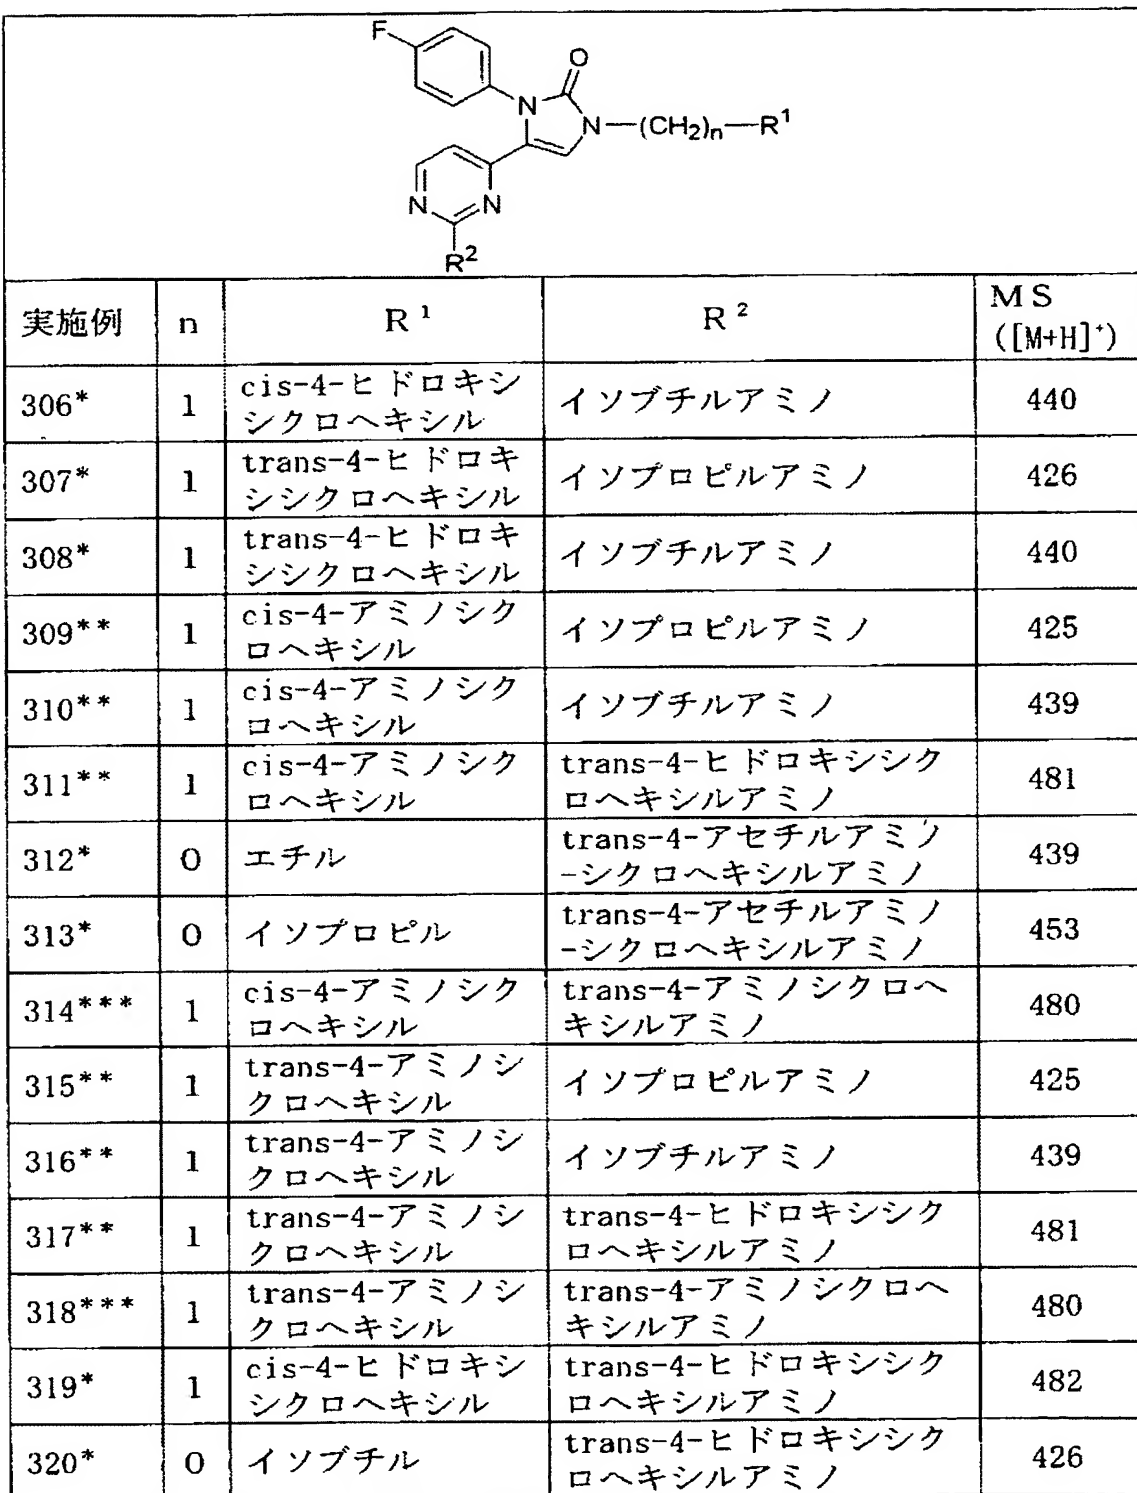 F
O
N
N—(CH₂)n—R¹
N
N
R²
実施例 n R¹ R² MS
([M+H]⁺)
306* 1 cis-4-ヒドロキシ
シクロヘキシル イソブチルアミノ 440
307* 1 trans-4-ヒドロキ
シシクロヘキシル イソプロピルアミノ 426
308* 1 trans-4-ヒドロキ
シシクロヘキシル イソブチルアミノ 440
309** 1 cis-4-アミノシク
ロヘキシル イソプロピルアミノ 425
310** 1 cis-4-アミノシク
ロヘキシル イソブチルアミノ 439
311** 1 cis-4-アミノシク
ロヘキシル trans-4-ヒドロキシシク
ロヘキシルアミノ 481
312* 0 エチル trans-4-アセチルアミノ
-シクロヘキシルアミノ 439
313* 0 イソプロピル trans-4-アセチルアミノ
-シクロヘキシルアミノ 453
314*** 1 cis-4-アミノシク
ロヘキシル trans-4-アミノシクロヘ
キシルアミノ 480
315** 1 trans-4-アミノシ
クロヘキシル イソプロピルアミノ 425
316** 1 trans-4-アミノシ
クロヘキシル イソブチルアミノ 439
317** 1 trans-4-アミノシ
クロヘキシル trans-4-ヒドロキシシク
ロヘキシルアミノ 481
318*** 1 trans-4-アミノシ
クロヘキシル trans-4-アミノシクロヘ
キシルアミノ 480
319* 1 cis-4-ヒドロキシ
シクロヘキシル trans-4-ヒドロキシシク
ロヘキシルアミノ 482
320* 0 イソブチル trans-4-ヒドロキシシク
ロヘキシルアミノ 426